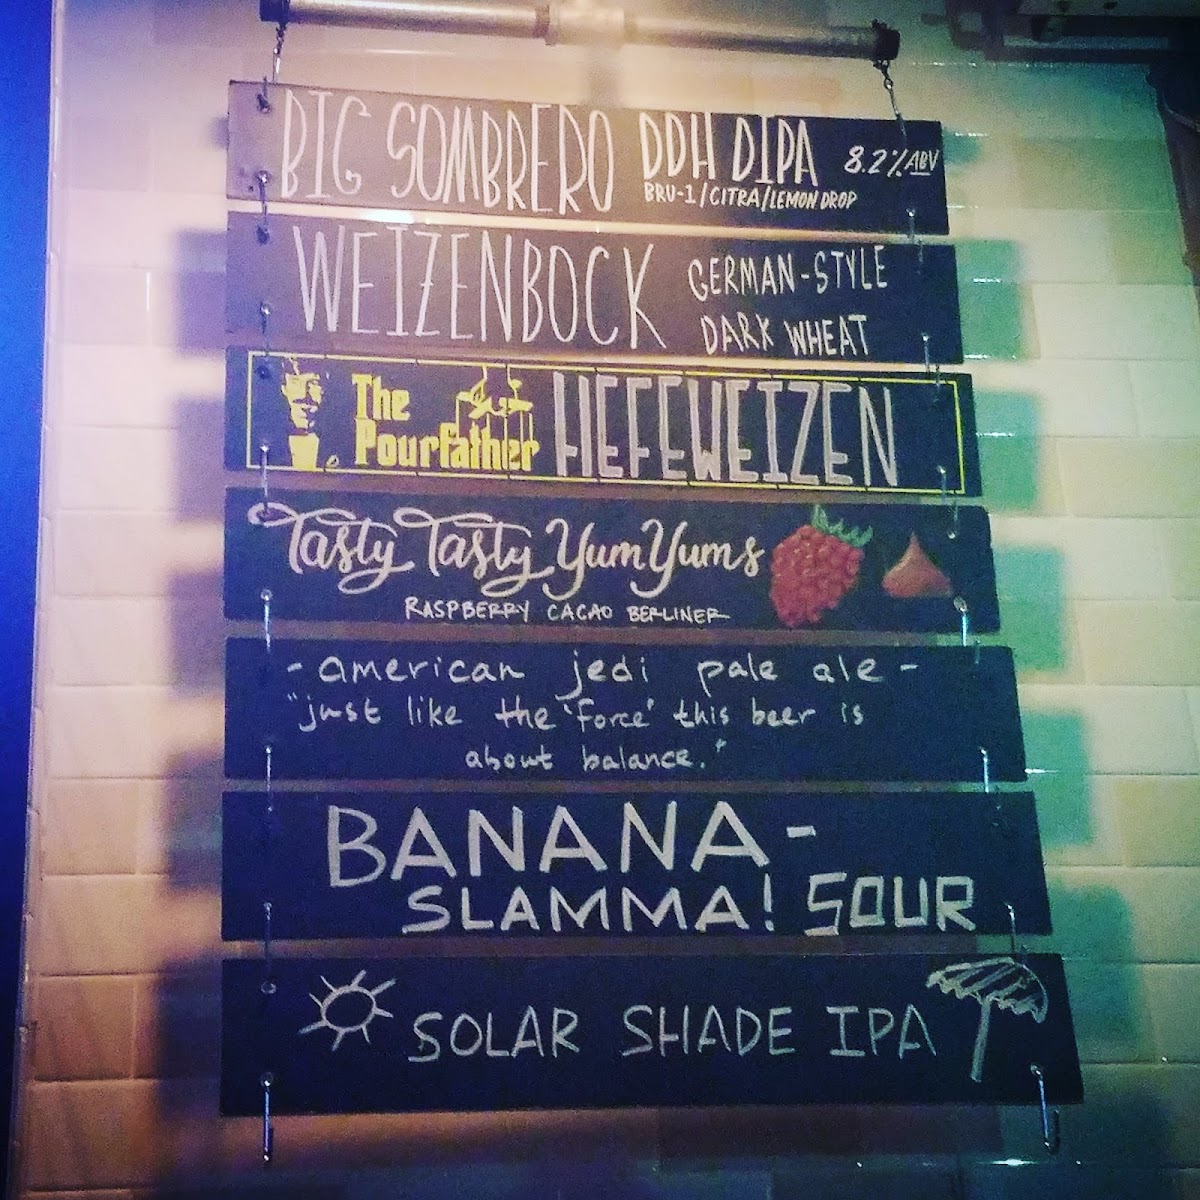 BIG SOMBRERO DDH DIPA 8.2% ABV
BRU-1/CITRA/LEMON DROP
WEIZENBOCK GERMAN-STYLE
DARK WHEAT
The
Pourfather HEFEWEIZEN
Tasty Tasty Yum Yums
RASPBERRY CACAO BERLINER
- american jedi pale ale -
"just like the 'force' this beer is
about balance."
BANANA-
SLAMMA! SOUR
SOLAR SHADE IPA